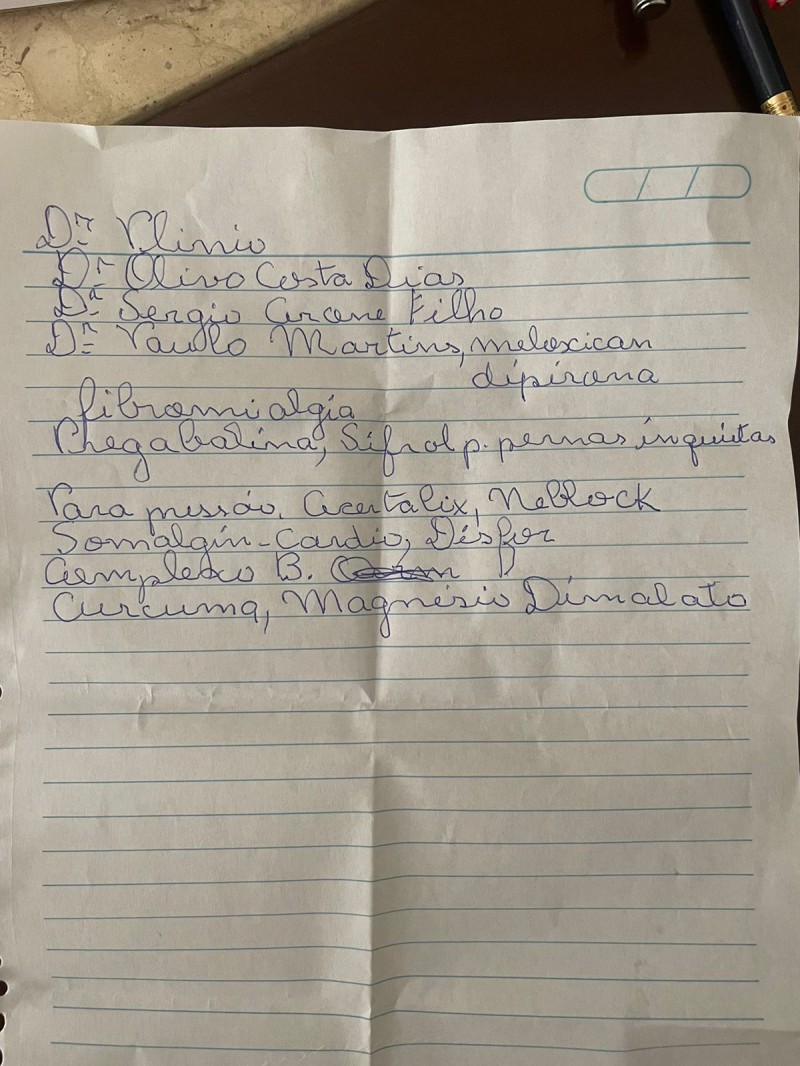 Dr. Plinio
Dr. Olivo Costa Dias
Dr. Sergio Arone Filho
Dr. Paulo Martins, meloxican
dipirona
fibromialgia
Phegabalina, Sifrol p. pernas inquietas
Para pressão. Acertalix, Neblock
Somalgin-Cardio, Désfor
Complexo B. D
Curcuma, Magnésio Dimalato